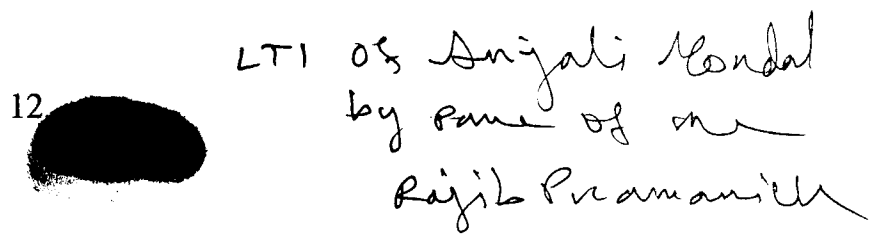 LTI of Anjali Mondal
12
by pen of me
Rajib Pramanick